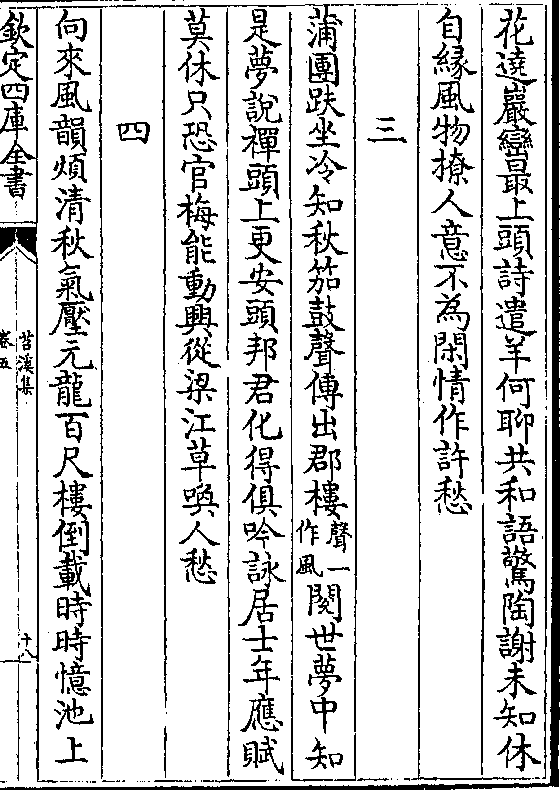 花遶巖巒最上頭詩遣羊何聊共和語驚陶謝未知休
自縁風物撩人意不為閑情作許愁
三
蒲團趺坐冷知秋笳鼓聲傳出郡樓聲一作風閱世夢中知
是夢說禪頭上更安頭邦君化得俱吟詠居士年應賦
莫休只恐官梅能動興從梁江草喚人愁
四
向來風韻頫清秋氣壓元龍百尺樓倒載時時憶池上
欽定四庫全書
苕溪集
卷五
十八